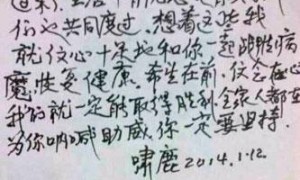 们也共同度过,想着这些我
就信心十足地和你一起战胜病
魔,恢复健康.希望在前,信念在心
我们的就一定能取得胜利.全家人都在
为你呐喊助威,你一定要坚持.
啸鹿 2014.1.12.